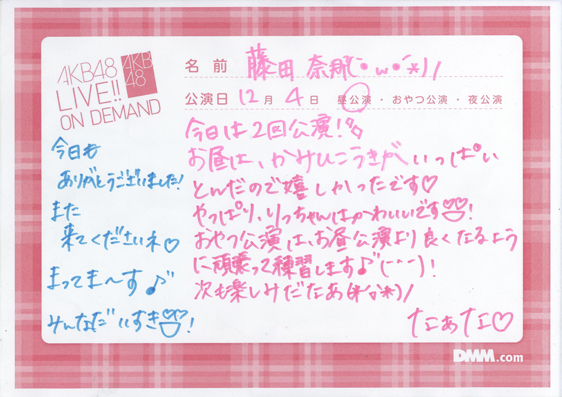 AKB48
LIVE!!
ON DEMAND
AKB
48
名前 藤田 奈那(･ω･´*)ﾉ
公演日 12月 4日 昼公演・おやつ公演・夜公演
今日は2回公演!
お昼は、かみひこうきが いっぱい
とんだので嬉しかったです♡
やっぱり、りっちゃんはかわいいです!
おやつ公演は、お昼公演より良くなるよう
に頑張って練習します♪(˙-˙)!
次も楽しみだなあ(*'▽'*)ﾉ
なぁな♡
今日も
ありがとうございました!
また
来てくださいネ♡
まってま〜す♪
みんなだいすき!
DMM.com